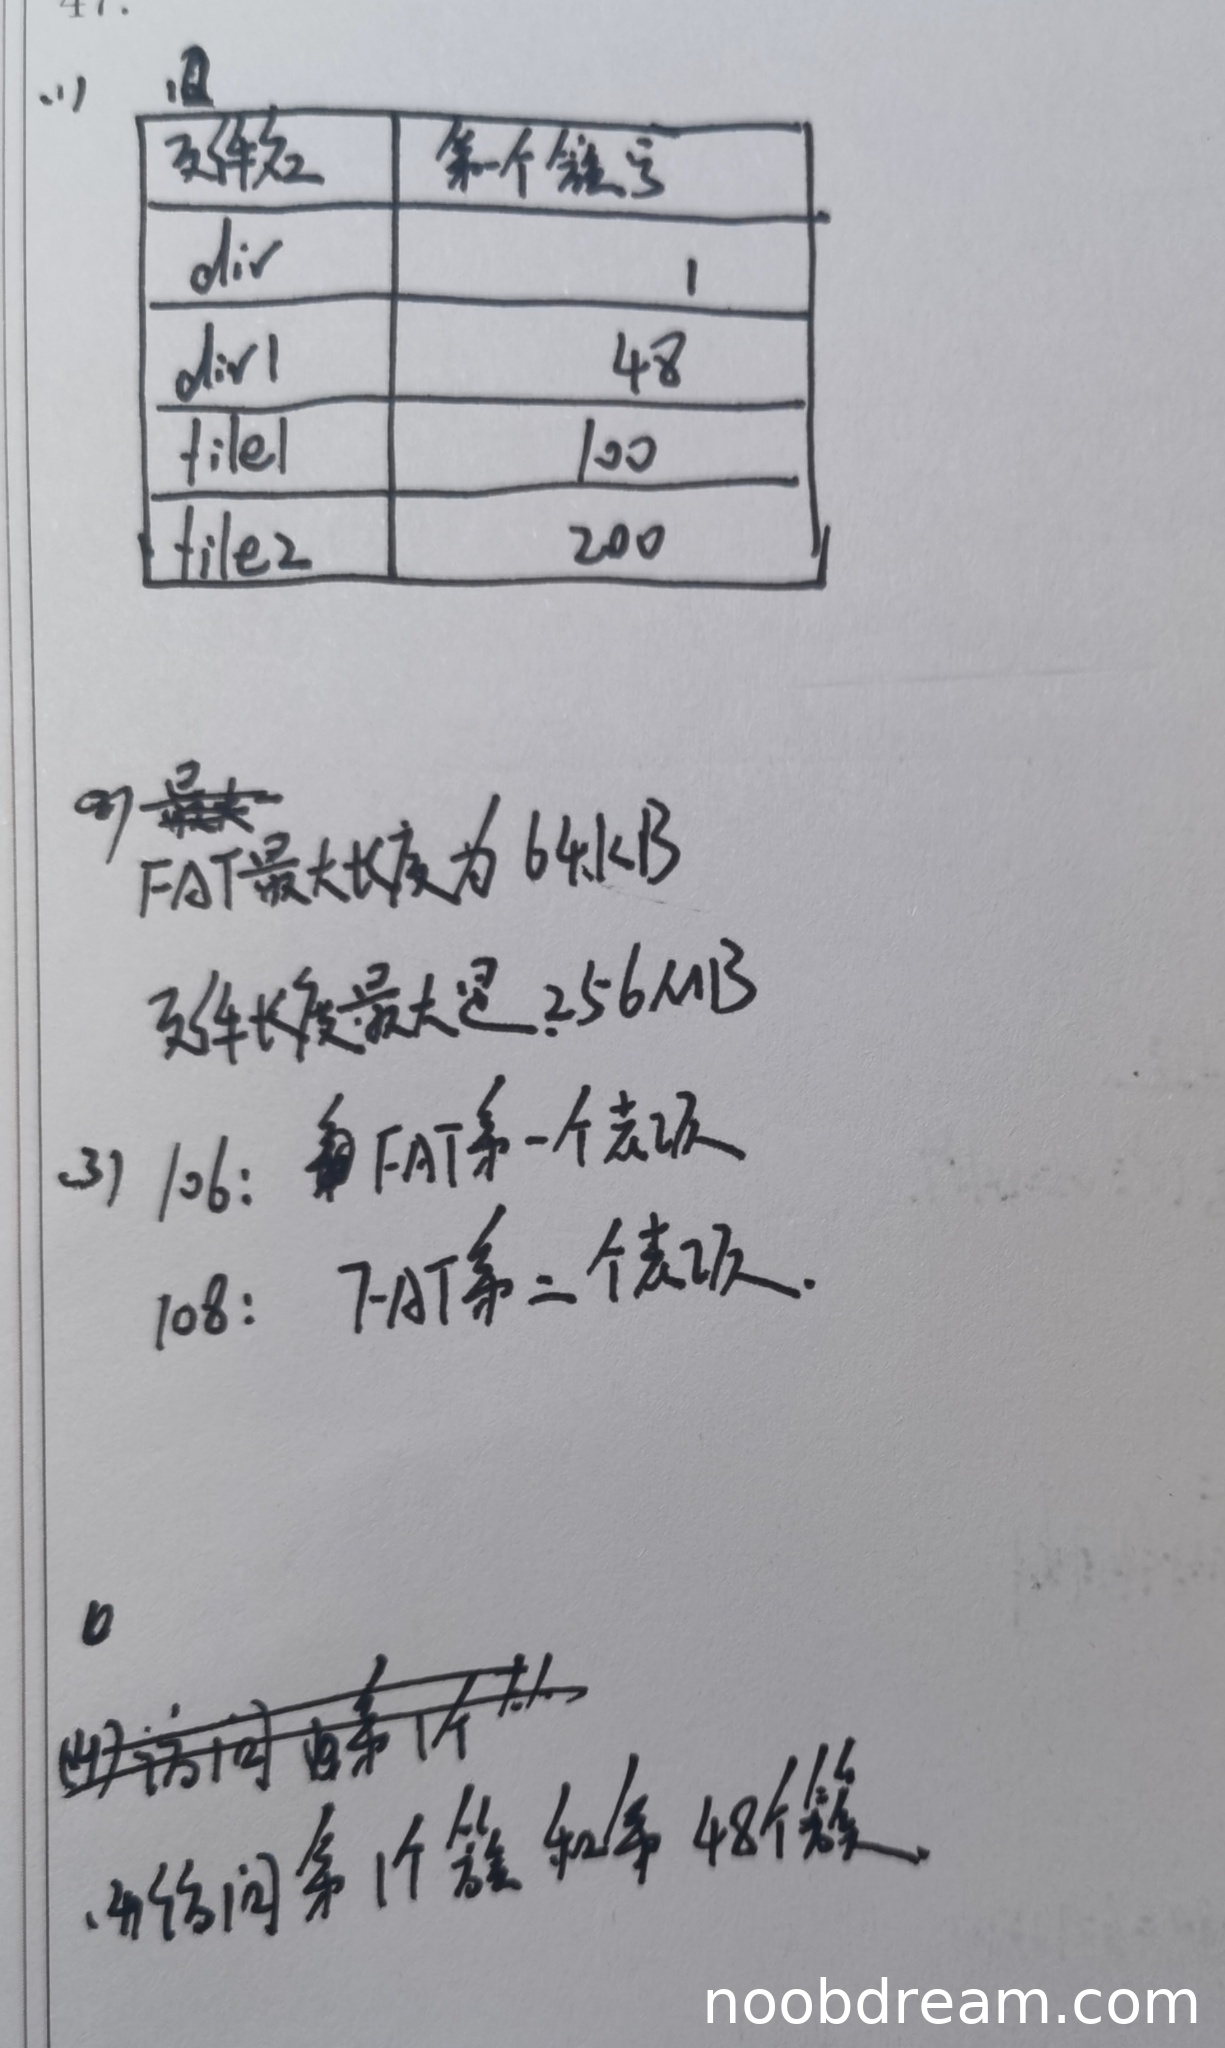 47.
(1)
文件名 第一个簇号
dir 1
dir1 48
file1 100
file2 200
(2) 最大
FAT最大长度为 64KB
文件长度最大是 256MB
(3) 106: FAT第一个表项
108: FAT第二个表项.
(4) 访问 第1个
(4) 访问第1个簇和第48个簇.
noobdream.com